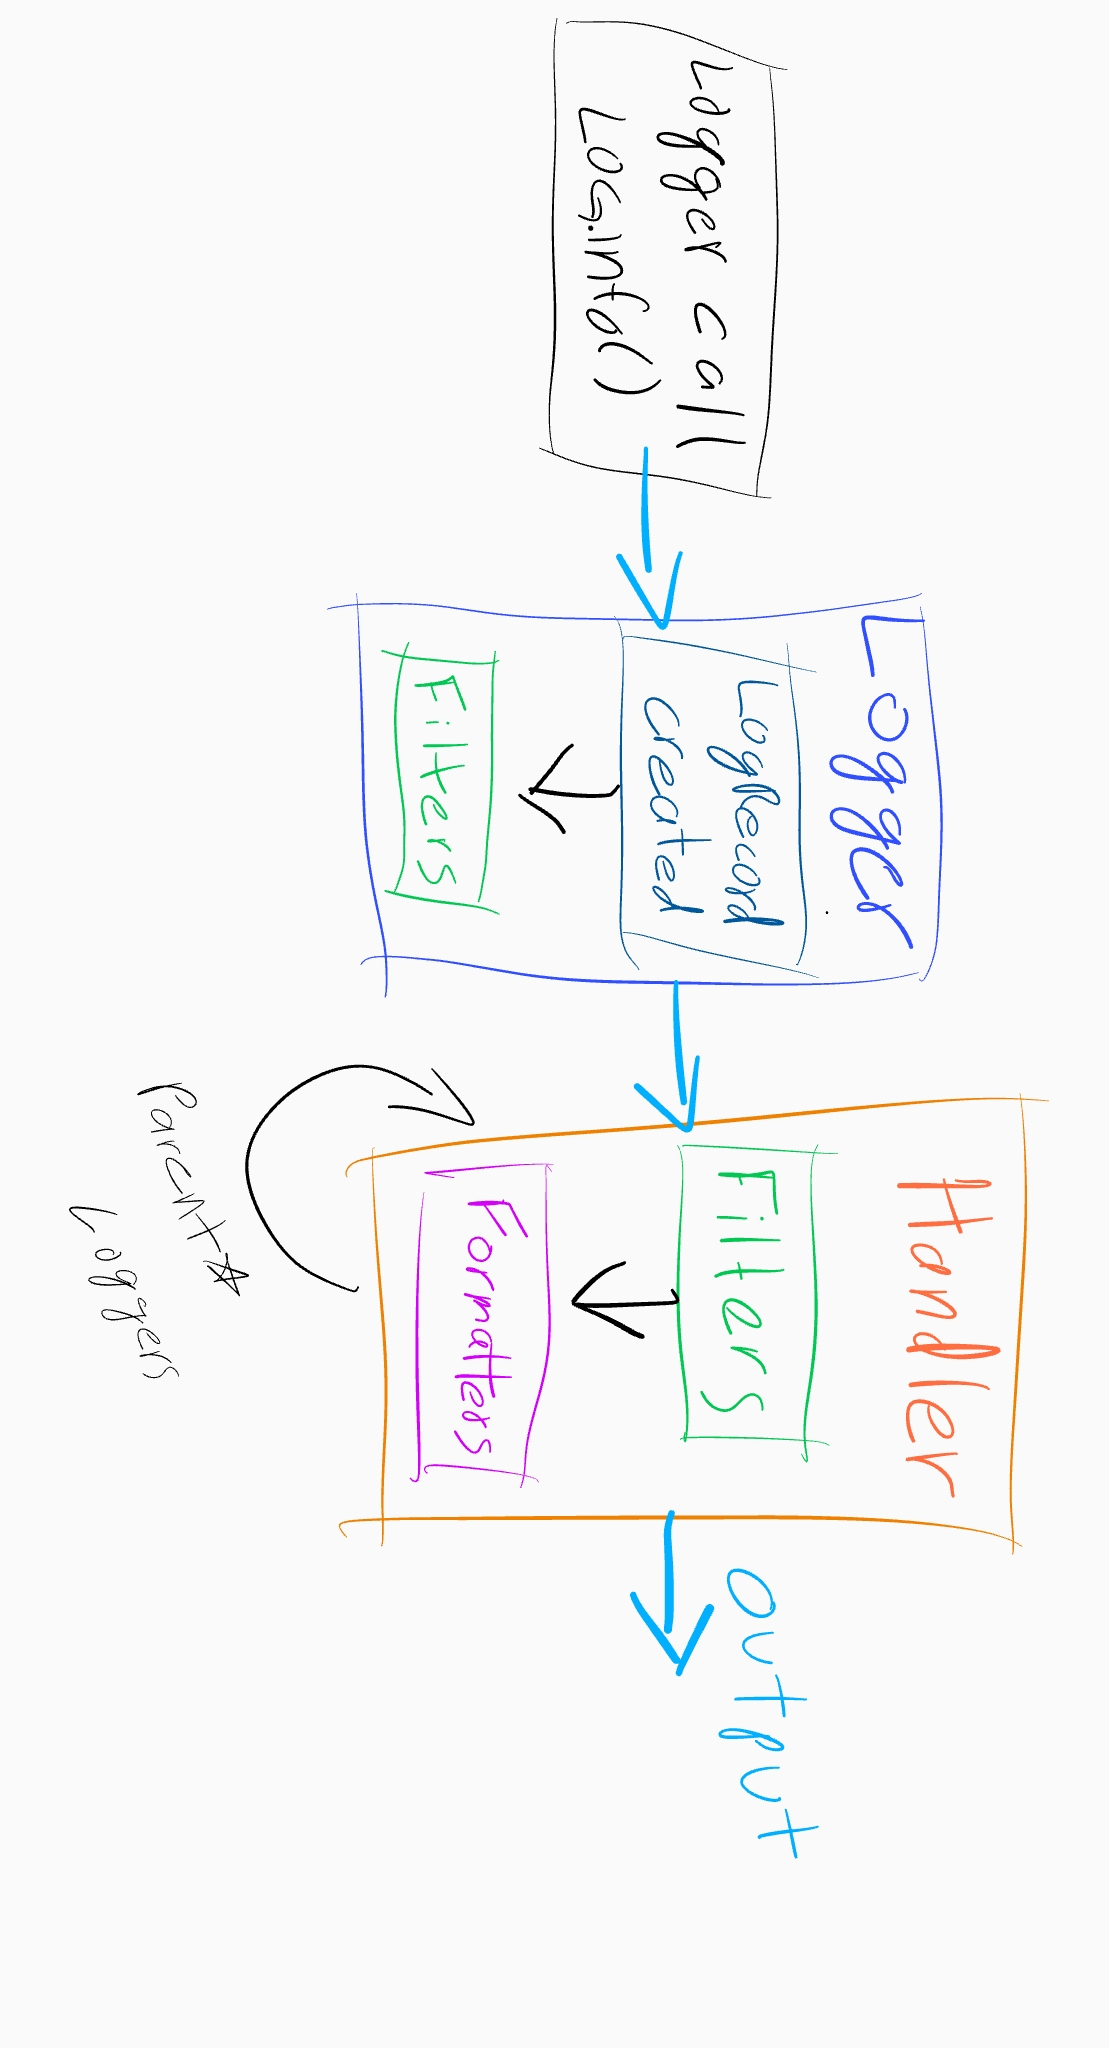 Logger call
Log.info()
Logger
LogRecord
created
Filters
Handler
Filters
Formatters
Parent☆
Loggers
Output